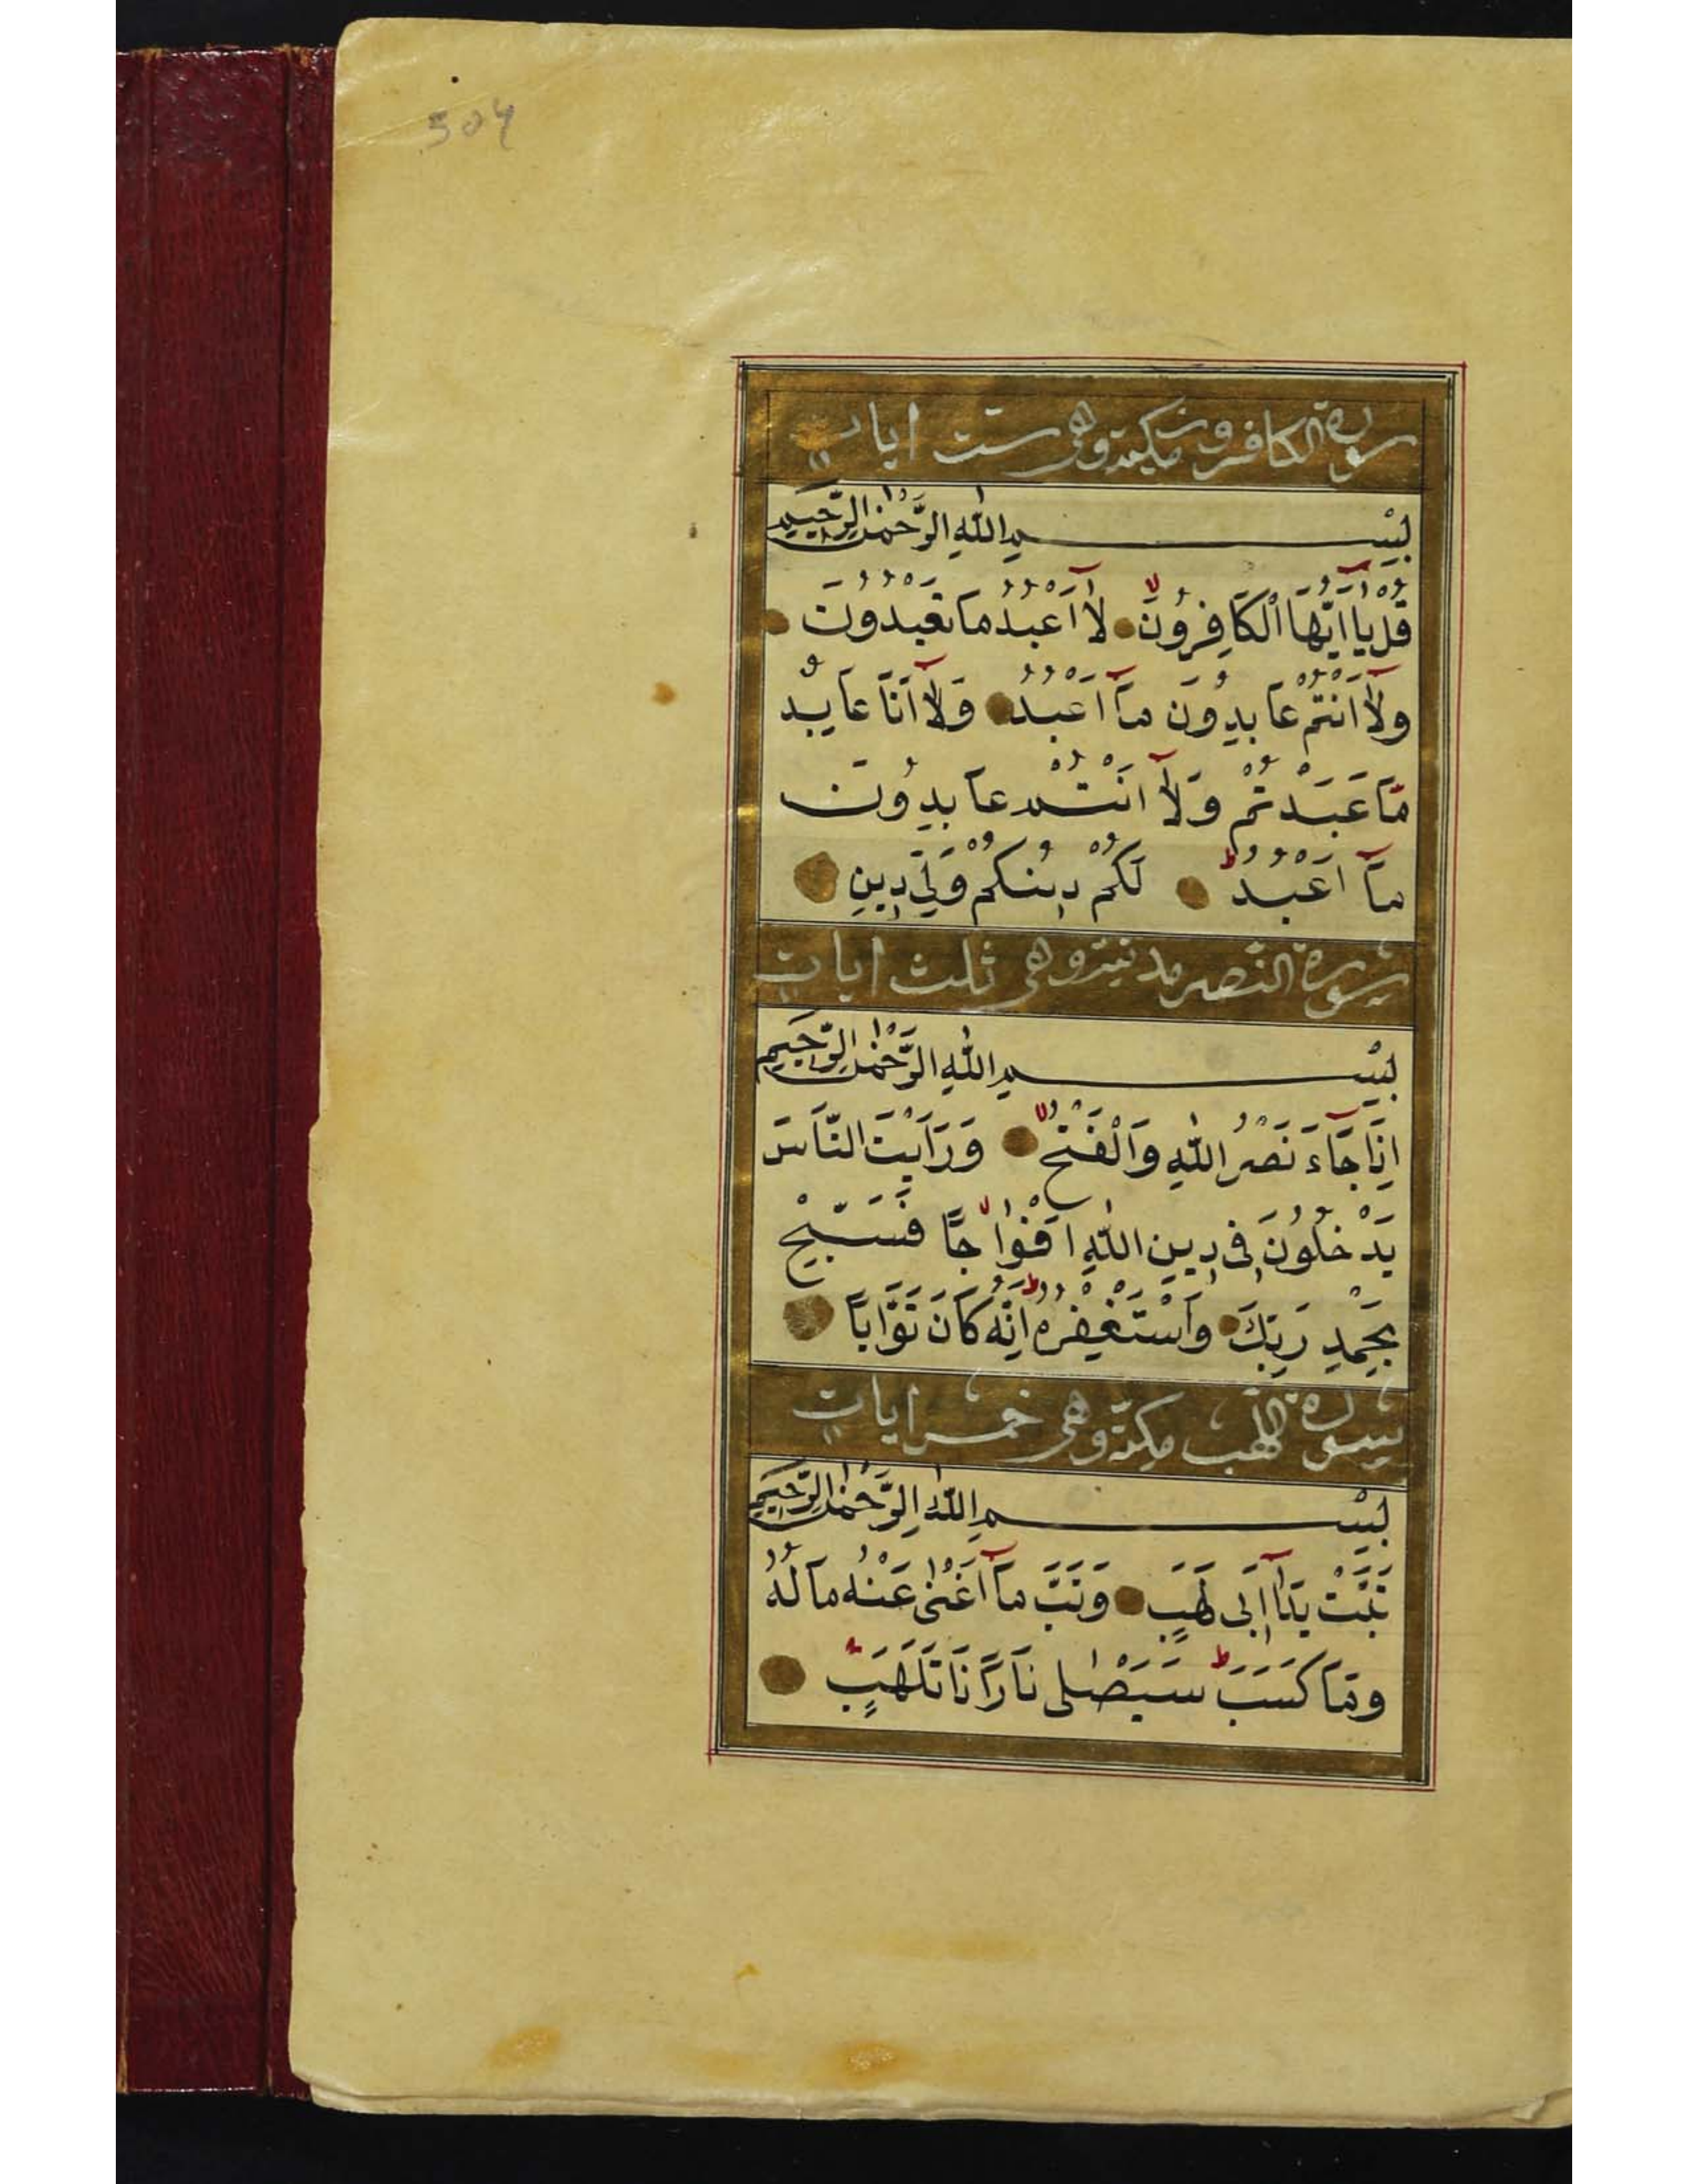 504
سورة الكافرون مكية وهى ست ايات
بِسْمِ اللّٰهِ الرَّحْمٰنِ الرَّحِيمِ
قُلْ يَآ اَيُّهَا الْكَافِرُونَ لَآ اَعْبُدُ مَا تَعْبُدُونَ
وَلَآ اَنْتُمْ عَابِدُونَ مَآ اَعْبُدُ وَلَآ اَنَا عَابِدٌ
مَا عَبَدْتُمْ وَلَآ اَنْتُمْ عَابِدُونَ
مَآ اَعْبُدُ لَكُمْ دِينُكُمْ وَلِيَ دِينِ
سورة النصر مدنية وهى ثلث ايات
بِسْمِ اللّٰهِ الرَّحْمٰنِ الرَّحِيمِ
اِذَا جَآءَ نَصْرُ اللّٰهِ وَالْفَتْحُ وَرَاَيْتَ النَّاسَ
يَدْخُلُونَ فِى دِينِ اللّٰهِ اَفْوَاجًا فَسَبِّحْ
بِحَمْدِ رَبِّكَ وَاسْتَغْفِرْهُ اِنَّهُ كَانَ تَوَّابًا
سورة اللهب مكية وهى خمس ايات
بِسْمِ اللّٰهِ الرَّحْمٰنِ الرَّحِيمِ
تَبَّتْ يَدَآ اَبِى لَهَبٍ وَتَبَّ مَآ اَغْنٰى عَنْهُ مَالُهُ
وَمَا كَسَبَ سَيَصْلٰى نَارًا ذَاتَ لَهَبٍ